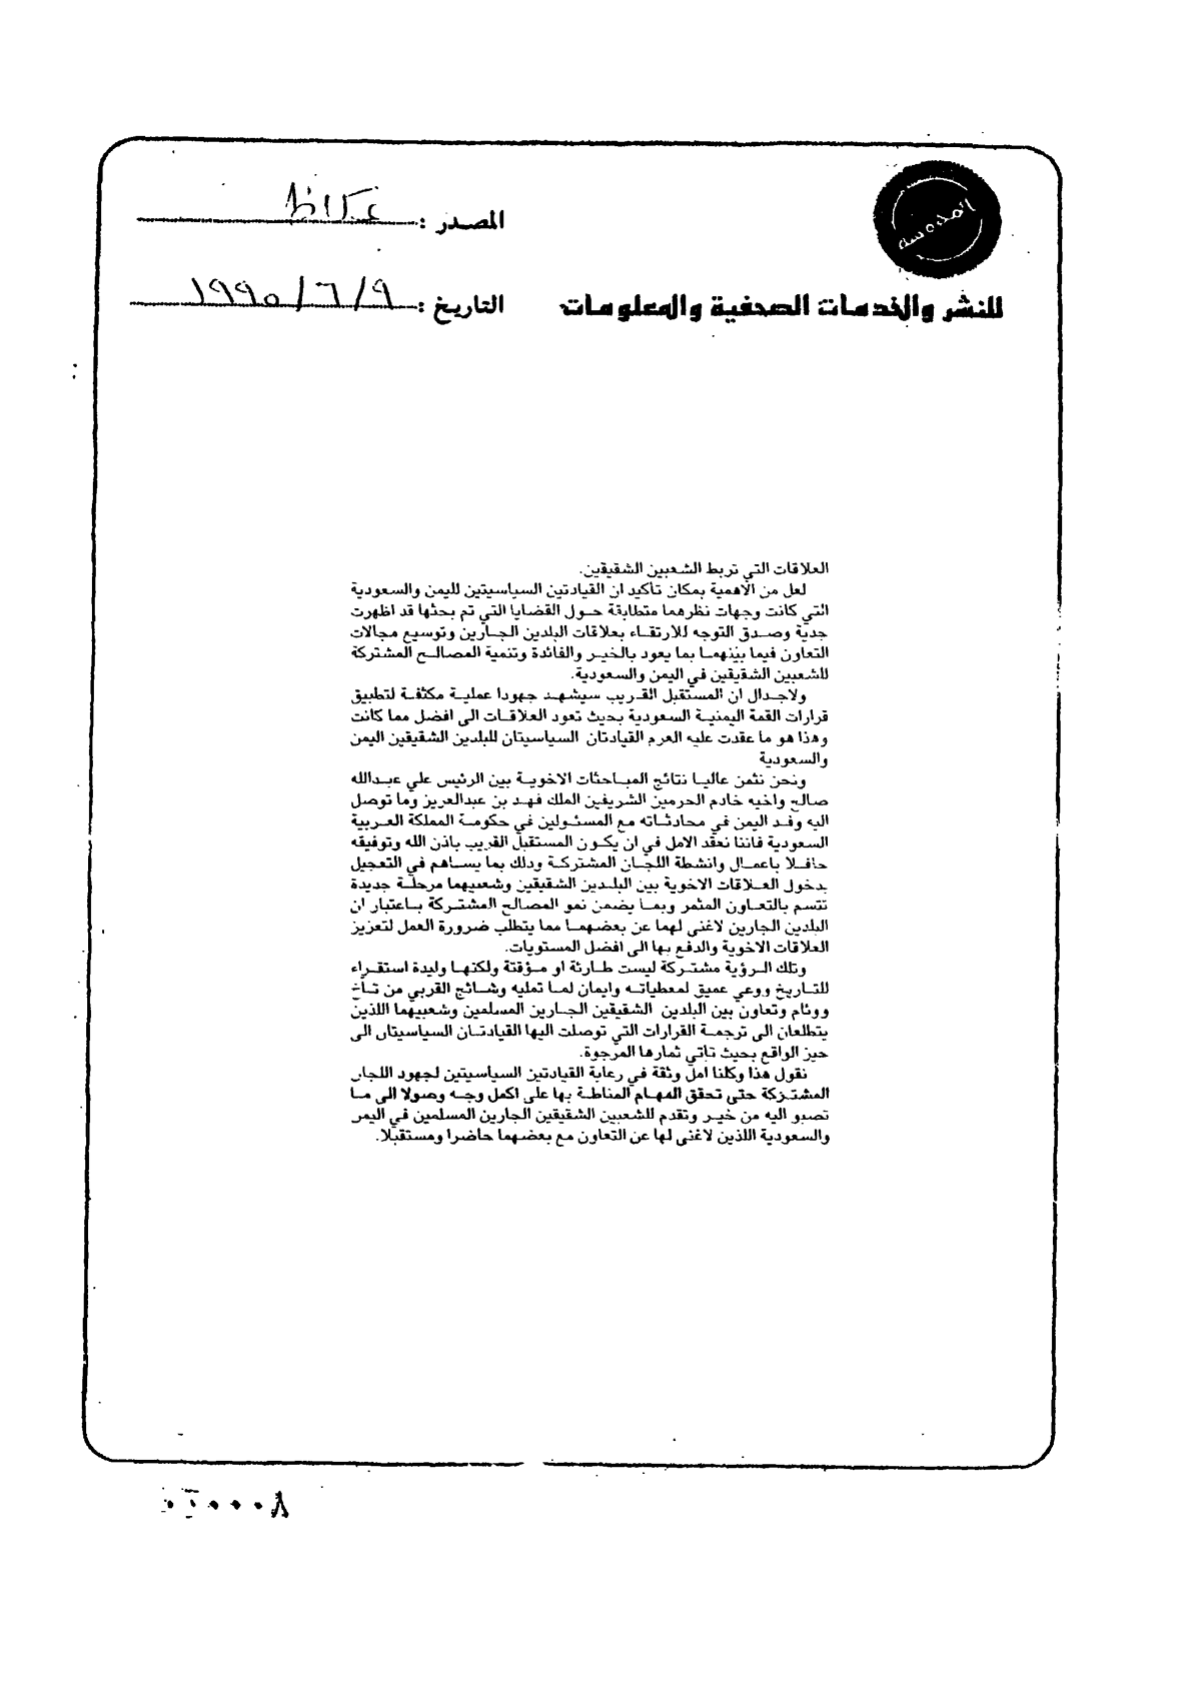 المصدر : عكاظ
التاريخ : ١٩٩٠/٦/٩
للنشر والخدمات الصحفية والمعلومات
العلاقات التي تربط الشعبين الشقيقين.
لعل من الاهمية بمكان تأكيد ان القيادتين السياسيتين لليمن والسعودية
التي كانت وجهات نظرهما متطابقة حول القضايا التي تم بحثها قد اظهرت
جدية وصدق التوجه للارتقاء بعلاقات البلدين الجارين وتوسيع مجالات
التعاون فيما بينهما بما يعود بالخير والفائدة وتنمية المصالح المشتركة
للشعبين الشقيقين في اليمن والسعودية.
ولاجدال ان المستقبل القريب سيشهد جهودا عملية مكثفة لتطبيق
قرارات القمة اليمنية السعودية بحيث تعود العلاقات الى افضل مما كانت
وهذا هو ما عقدت عليه العزم القيادتان السياسيتان للبلدين الشقيقين اليمن
والسعودية
ونحن نثمن عاليا نتائج المباحثات الاخوية بين الرئيس علي عبدالله
صالح واخيه خادم الحرمين الشريفين الملك فهد بن عبدالعزيز وما توصل
اليه وفد اليمن في محادثاته مع المسئولين في حكومة المملكة العربية
السعودية فاننا نعقد الامل في ان يكون المستقبل القريب باذن الله وتوفيقه
حافلا باعمال وانشطة اللجان المشتركة وذلك بما يساهم في التعجيل
بدخول العلاقات الاخوية بين البلدين الشقيقين وشعبيهما مرحلة جديدة
تتسم بالتعاون المثمر وبما يضمن نمو المصالح المشتركة باعتبار ان
البلدين الجارين لاغنى لهما عن بعضهما مما يتطلب ضرورة العمل لتعزيز
العلاقات الاخوية والدفع بها الى افضل المستويات.
وتلك الرؤية مشتركة ليست طارئة او مؤقتة ولكنها وليدة استقراء
للتاريخ ووعي عميق لمعطياته وايمان لما تمليه وشائج القربي من تآخ
ووئام وتعاون بين البلدين الشقيقين الجارين المسلمين وشعبيهما اللذين
يتطلعان الى ترجمة القرارات التي توصلت اليها القيادتان السياسيتان الى
حيز الواقع بحيث تأتي ثمارها المرجوة.
نقول هذا وكلنا امل وثقة في رعاية القيادتين السياسيتين لجهود اللجان
المشتركة حتى تحقق المهام المناطة بها على اكمل وجه وصولا الى ما
تصبو اليه من خير وتقدم للشعبين الشقيقين الجارين المسلمين في اليمن
والسعودية اللذين لاغنى لها عن التعاون مع بعضهما حاضرا ومستقبلا.